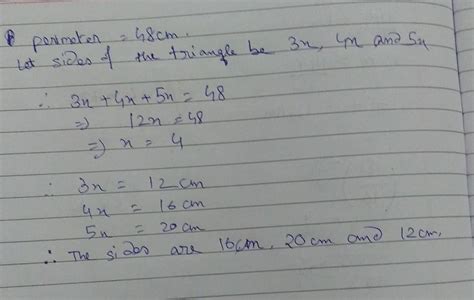 perimeter = 48cm.
Let sides of the triangle be 3x, 4x and 5x
∴ 3x + 4x + 5x = 48
=) 12x = 48
=) x = 4
∴ 3x = 12cm
4x = 16cm
5x = 20cm
∴ The sides are 16cm, 20cm and 12cm.